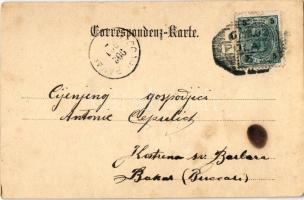 Correspondenz-Karte.
Cijenjenoj gospodjici
Antonie
Kostrena sv. Barbara
Bakar (Buccari)